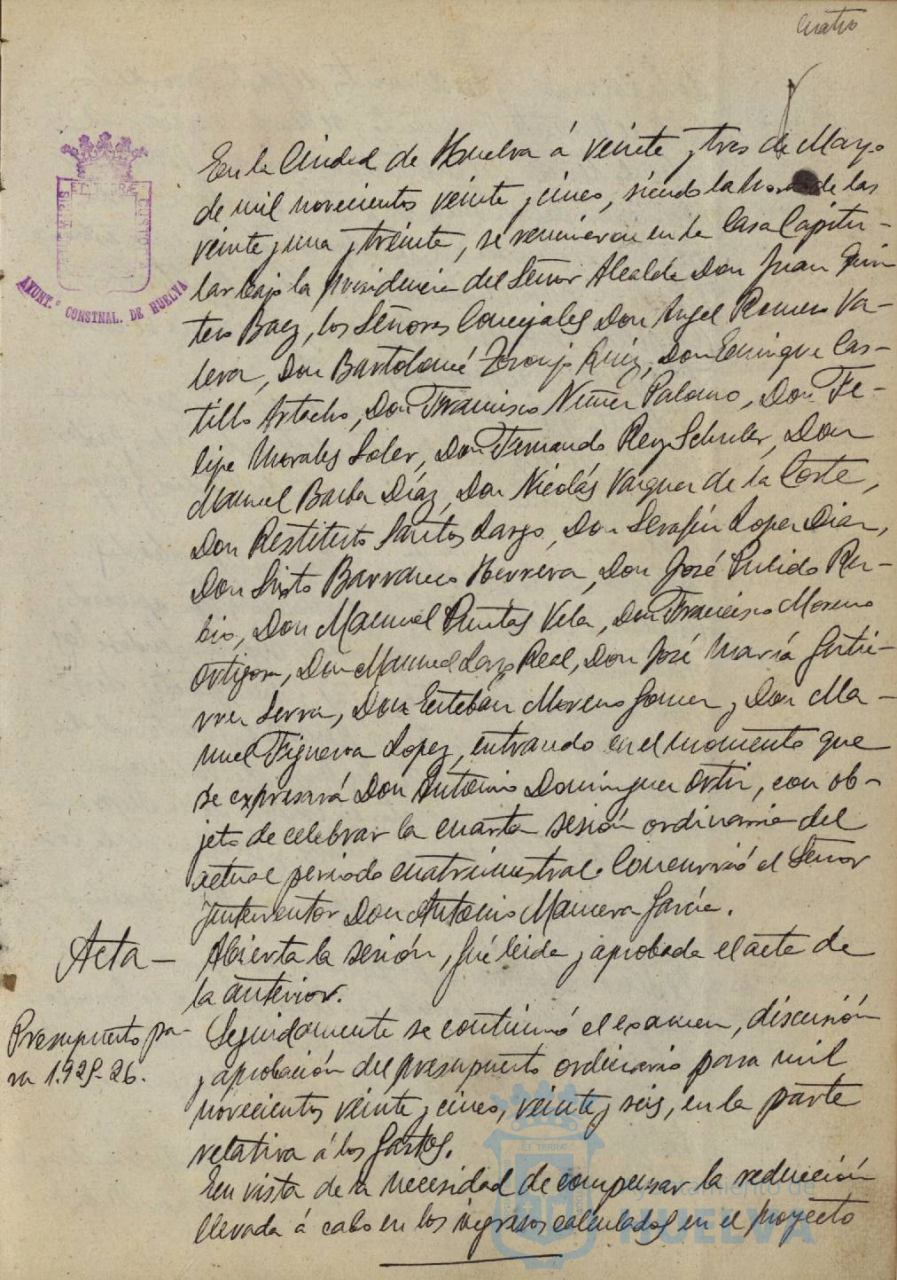 Cuatro
En la Ciudad de Huelva á veinte y tres de Marzo
de mil novecientos veinte y cinco, siendo la hora de las
veinte y una y treinta, se reunieron en la Casa Capitu-
lar bajo la presidencia del Señor Alcalde Don Juan Quin
tero Baez, los Señores Concejales Don Angel Romero Va-
lera, Don Bartolomé Toronjo Ruiz, Don Enrique Cas-
tillo Artacho, Don Francisco Nuñez Palomo, Don Fe-
lipe Morales Soler, Don Fernando Rey Schuler, Don
Manuel Barba Díaz, Don Nicolás Vazquez de la Corte,
Don Restituto Santos Largo, Don Serafín Lopez Dian,
Don Sixto Barranco Herrera, Don José Pulido Ru-
bio, Don Manuel Puntas Vela, Don Francisco Moreno
Ortigosa, Don Manuel Largo Real, Don José María Gutié-
rrez Serra, Don Esteban Moreno Gomez y Don Ma-
nuel Figueroa Lopez, entrando en el momento que
se expresará Don Antonio Dominguez Ortiz, con ob-
jeto de celebrar la cuarta sesión ordinaria del
actual periodo cuatrimestral. Concurrió el Señor
Interventor Don Antonio Mancera García.
Acta -
Abierta la sesión, fué leida y aprobada el acta de
la anterior.
Presupuesto pa-
ra 1.925-26.
Seguidamente se continuó el examen, discusión
y aprobación del presupuesto ordinario para mil
novecientos veinte y cinco, veinte y seis, en la parte
relativa á los gastos.
En vista de la necesidad de compensar la reducción
llevada á cabo en los ingresos calculados en el proyecto
AYUNT.º CONSTNAL. DE HUELVA
Ayuntamiento de
HUELVA